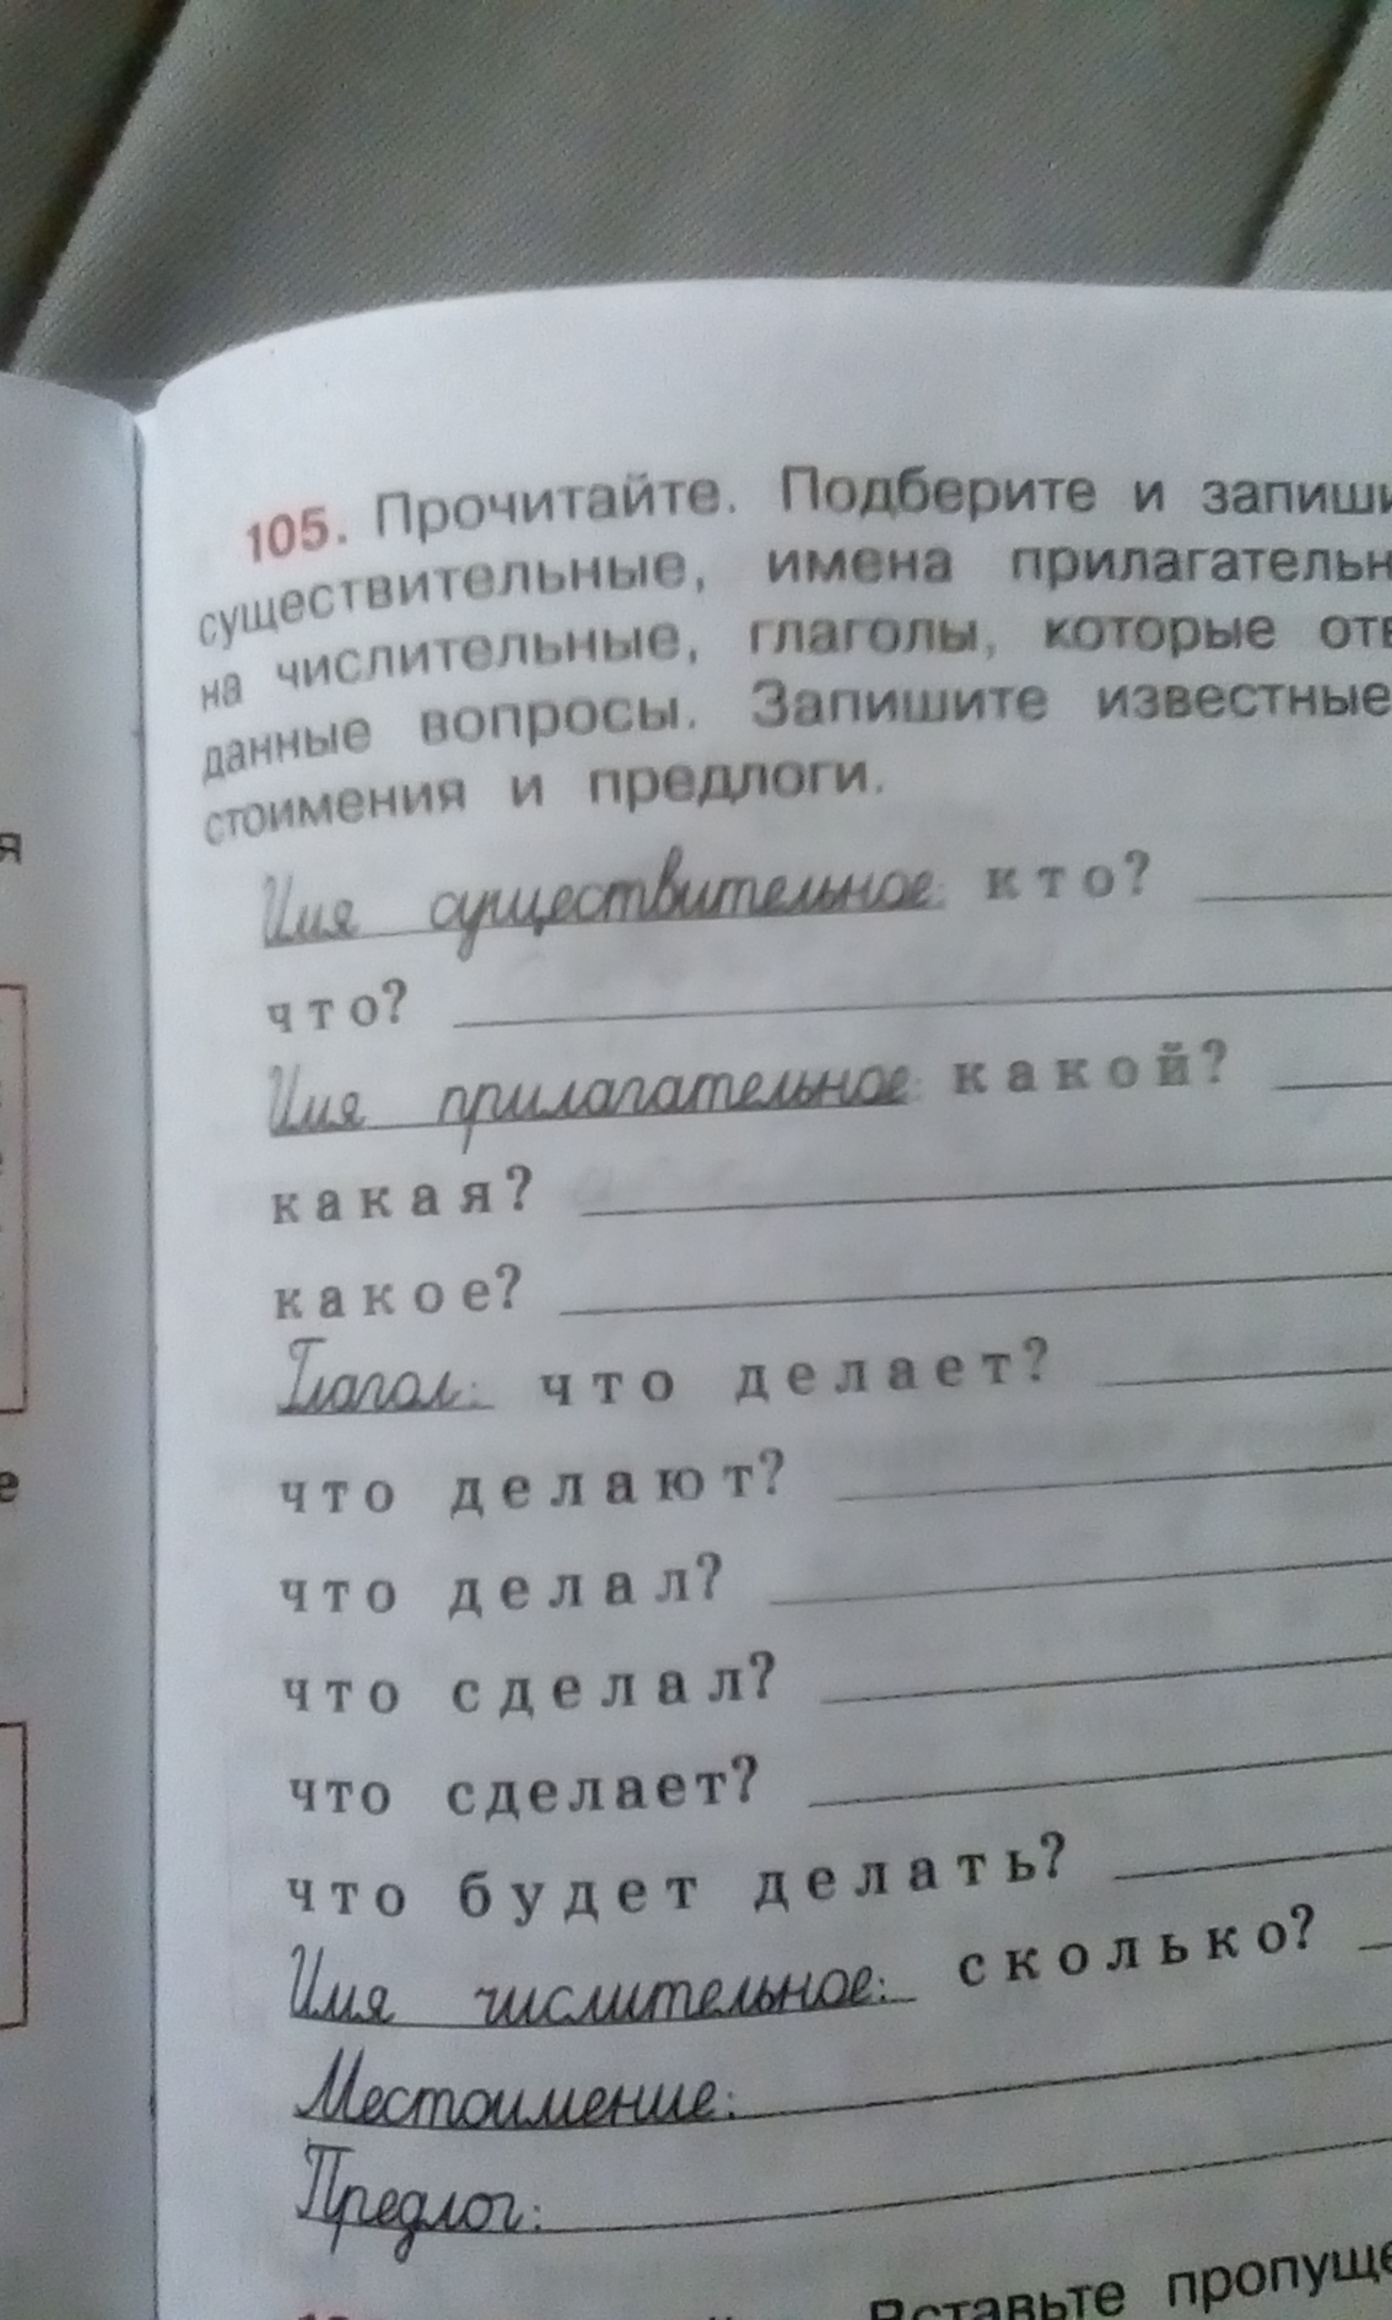 105. Прочитайте. Подберите и запиши
существительные, имена прилагательн
на числительные, глаголы, которые отв
данные вопросы. Запишите известные
стоимения и предлоги.
Имя существительное: кто?
что?
Имя прилагательное: какой?
какая?
какое?
Глагол: что делает?
что делают?
что делал?
что сделал?
что сделает?
что будет делать?
Имя числительное: сколько?
Местоимение:
Предлог:
Вставьте пропуще
я
е